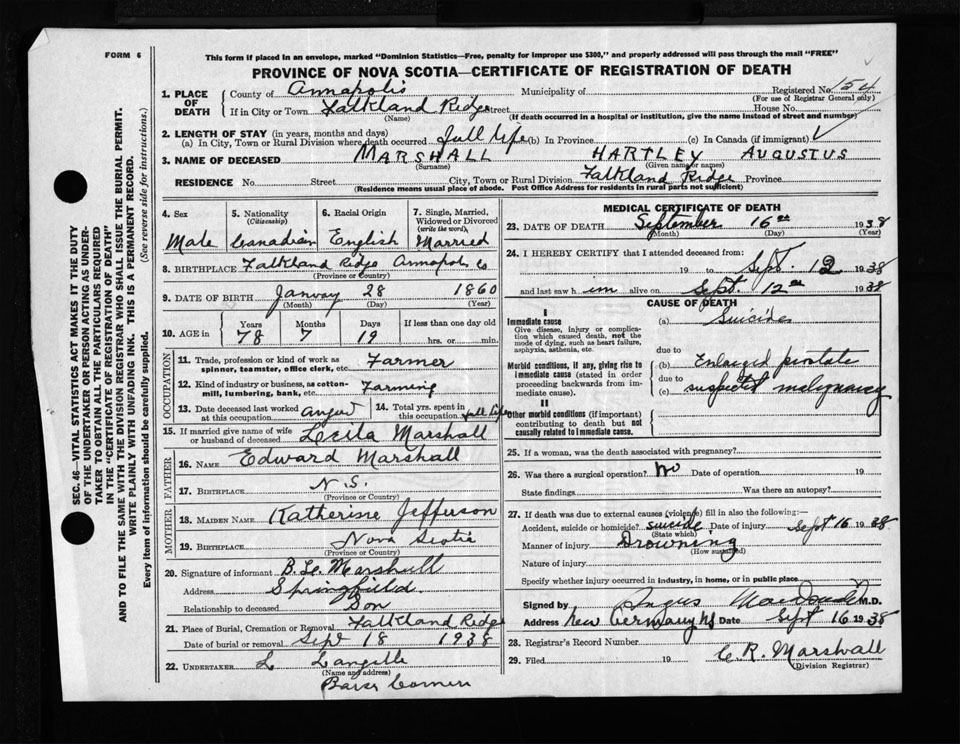 FORM 6
This form if placed in an envelope, marked "Dominion Statistics—Free, penalty for improper use $300," and properly addressed will pass through the mail "FREE"
PROVINCE OF NOVA SCOTIA—CERTIFICATE OF REGISTRATION OF DEATH
1. PLACE OF DEATH County of Annapolis Municipality of Registered No. 154
(For use of Registrar General only)
If in City or Town Falkland Ridge Street House No.
(Name) (If death occurred in a hospital or institution, give the name instead of street and number)
2. LENGTH OF STAY (in years, months and days)
(a) In City, Town or Rural Division where death occurred full life (b) In Province (c) In Canada (if immigrant)
3. NAME OF DECEASED MARSHALL HARTLEY AUGUSTUS
(Surname) (Given name or names)
RESIDENCE No. Street City, Town or Rural Division Falkland Ridge Province
(Residence means usual place of abode. Post Office Address for residents in rural parts not sufficient)
SEC. 46—VITAL STATISTICS ACT MAKES IT THE DUTY
OF THE UNDERTAKER OR PERSON ACTING AS UNDER-
TAKER TO OBTAIN ALL THE PARTICULARS REQUIRED
IN THE "CERTIFICATE OF REGISTRATION OF DEATH"
AND TO FILE THE SAME WITH THE DIVISION REGISTRAR WHO SHALL ISSUE THE BURIAL PERMIT.
WRITE PLAINLY WITH UNFADING INK. THIS IS A PERMANENT RECORD.
Every item of information should be carefully supplied. (See reverse side for instructions.)
4. Sex Male
5. Nationality (Citizenship) Canadian
6. Racial Origin English
7. Single, Married, Widowed or Divorced (write the word) Married
8. BIRTHPLACE Falkland Ridge Annapolis Co
(Province or Country)
9. DATE OF BIRTH January 28 1860
(Month) (Day) (Year)
10. AGE in Years Months Days If less than one day old
78 7 19 hrs. or min.
OCCUPATION
11. Trade, profession or kind of work as spinner, teamster, office clerk, etc Farmer
12. Kind of industry or business, as cotton-mill, lumbering, bank, etc. Farming
13. Date deceased last worked at this occupation August
14. Total yrs. spent in this occupation full life
15. If married give name of wife or husband of deceased Marshall
FATHER
16. NAME Edward Marshall
17. BIRTHPLACE N.S.
(Province or Country)
MOTHER
18. MAIDEN NAME Katherine Jefferson
19. BIRTHPLACE Nova Scotia
(Province or Country)
20. Signature of informant Marshall
Address Springfield
Relationship to deceased Son
21. Place of Burial, Cremation or Removal Falkland Ridge
Date of burial or removal Sept 18 1938
22. UNDERTAKER L Langille
(Name and address)
MEDICAL CERTIFICATE OF DEATH
23. DATE OF DEATH September 16th 1938
(Month) (Day) (Year)
24. I HEREBY CERTIFY that I attended deceased from:
19 to Sept. 12 1938
and last saw him alive on Sept. 12th 1938
CAUSE OF DEATH
I
Immediate cause
Give disease, injury or complication which caused death, not the mode of dying, such as heart failure, asphyxia, asthenia, etc.
(a) Suicide
due to
Morbid conditions, if any, giving rise to immediate cause (stated in order proceeding backwards from immediate cause).
(b) Enlarged prostate
due to
(c) suspected malignancy
II
Other morbid conditions (if important) contributing to death but not causally related to immediate cause.
25. If a woman, was the death associated with pregnancy?
26. Was there a surgical operation? No Date of operation 19
State findings Was there an autopsy?
27. If death was due to external causes (violence) fill in also the following:—
Accident, suicide or homicide? suicide Date of injury Sept 16 1938
(State which)
Manner of injury Drowning
(How sustained)
Nature of injury
Specify whether injury occurred in industry, in home, or in public place
Signed by Angus M.D.
Address New Germany NS Date Sept 16 1938
28. Registrar's Record Number
29. Filed 19 C. R. Marshall
(Division Registrar)